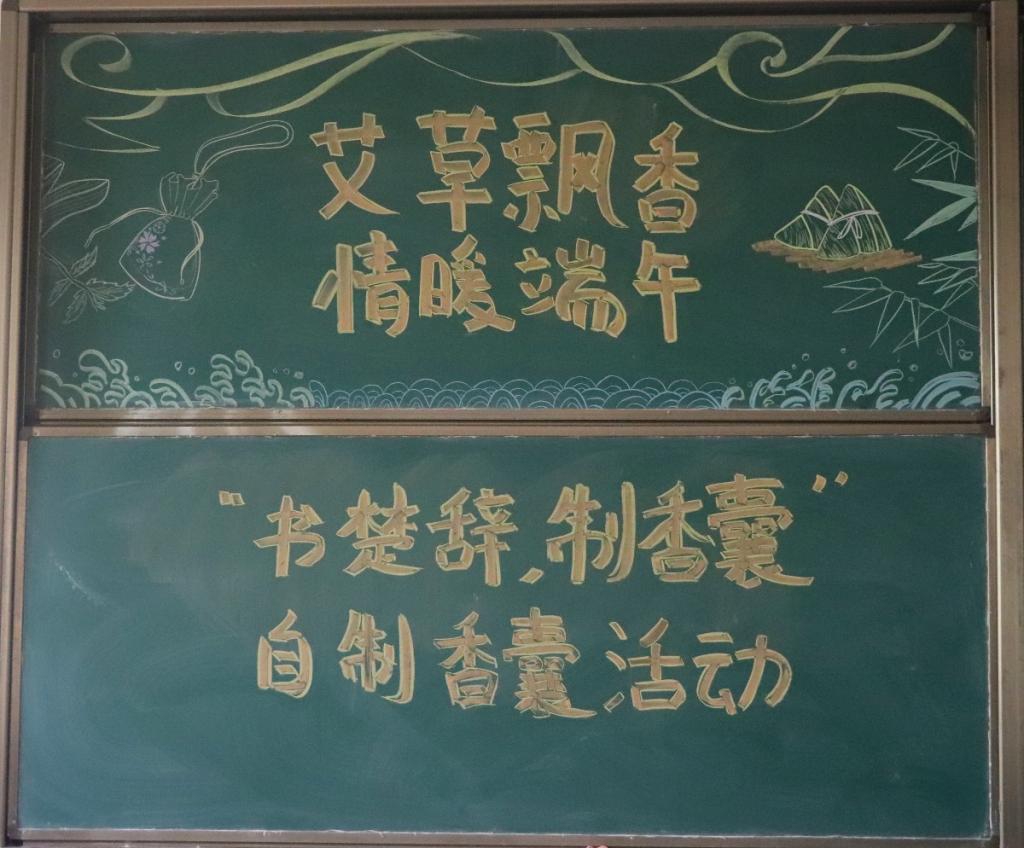 艾草飘香
情暖端午
“书楚辞,制香囊”
自制香囊活动